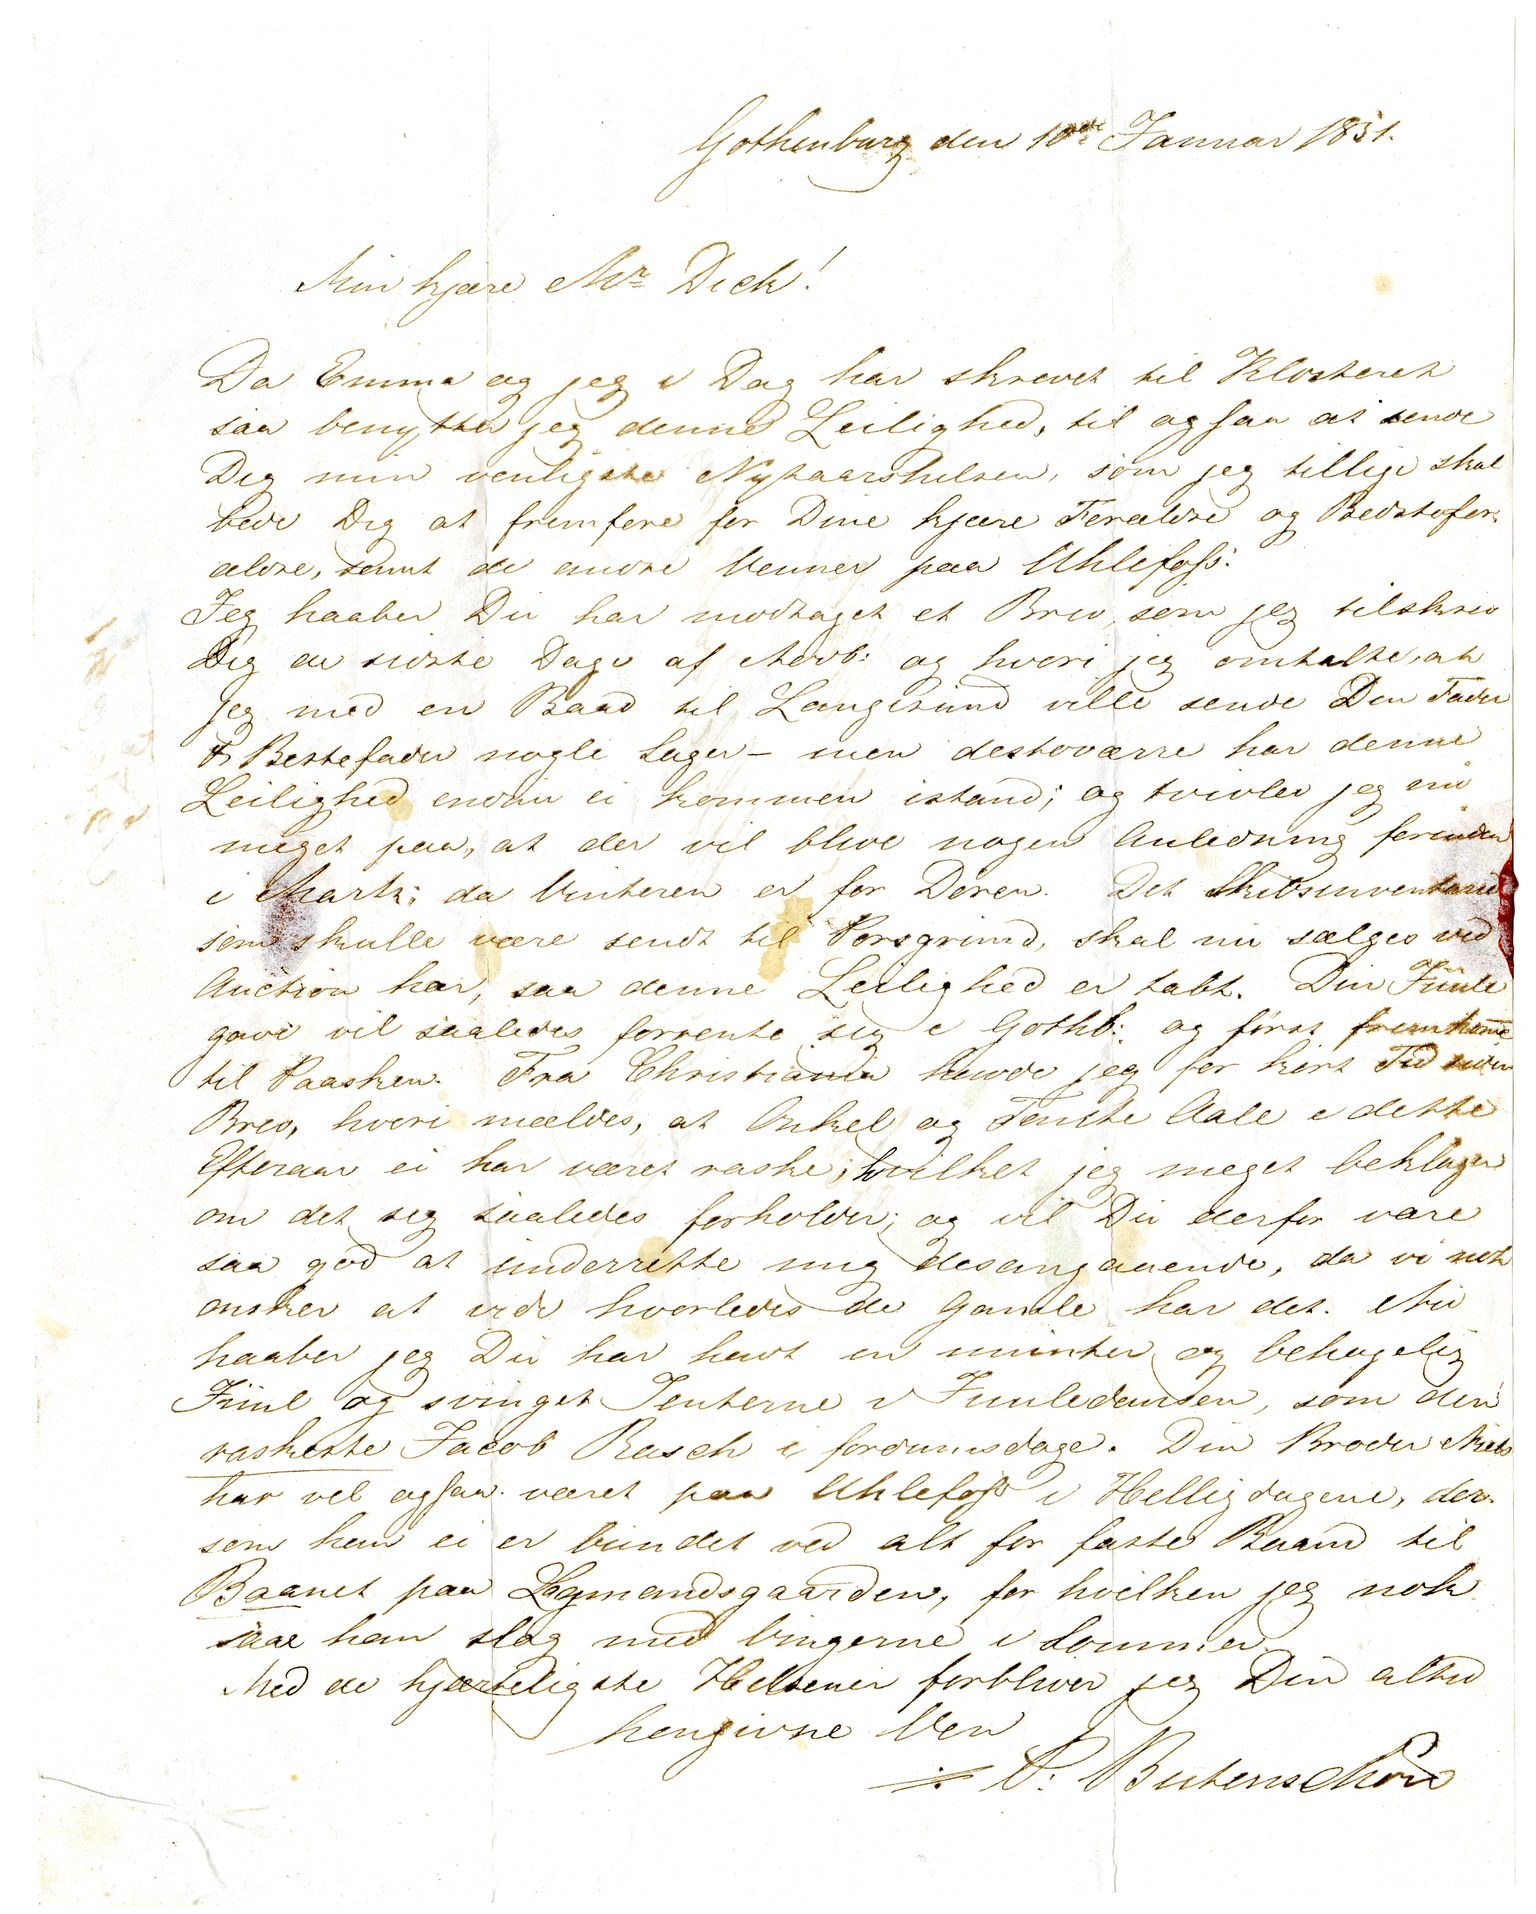 Gothenburg den 10de Januar 1851.
Min kjære Mr Dick!
Da Emma og jeg i Dag har skrevet til Klosteret
saa benytter jeg denne Leilighed, til ogsaa at sende
Dig min venligste Nytaarshilsen, som jeg tillige skal
bede Dig at fremføre for Dine kjære Forældre og Bedstefor-
ældre, samt de andre Venner paa Uhlefoss.
Jeg haaber Du har modtaget et Brev, som jeg tilskrev
Dig de sidste Dage af Novb: og hvori jeg omtalte, at
jeg med en Baad til Langesund ville sende Din Fader
& Bestefader nogle Sager – men desto værre har denne
Leilighed endnu ei kommen istand; og tvivler jeg nu
meget paa, at der vil blive nogen Anledning forinden
i Marts; da Vinteren er for Døren. Det Skibsinventarie
som skulle være sendt til Porsgrund, skal nu sælges ved
Auction her, saa denne Leilighed er tabt. Din Juule
gave vil saaledes forrente sig i Gothb: og først fremkomme
til Paasken. Fra Christiania havde jeg for kort Tid siden
Brev, hvori meldes, at Onkel og Tante Aall i dette
Efteraar ei har været raske, hvilket jeg meget beklager
om det sig saaledes forholder; og vil Du derfor være
saa god at underrette mig desangaaende, da vi nok
ønsker at vide hvorledes de Gamle har det. Nu
haaber jeg Du har havt en munter og behagelig
Juul og svinget Jenterne i Juuledandsen, som den
raskeste Jacob Rasch i fordumsdage. Din Broder Niels
har vel ogsaa været paa Uhlefoss i Helligdagene, der-
som han ei er bundet ved alt for faste Baand til
Baanet paa Lagmandsgaarden, for hvilken jeg nok
saae han slog med Vingerne i Sommer.
Med de hjerteligste Hilsener forbliver jeg Din altid
hengivne Ven
P: Butenschøn